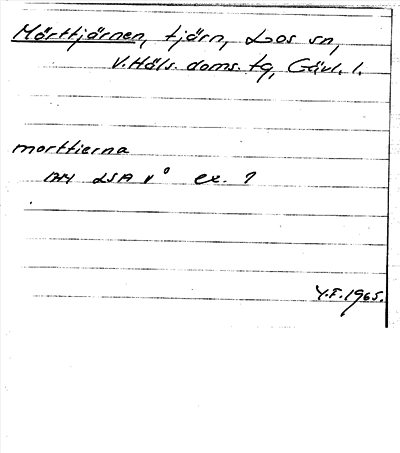 Mörttjärnen, tjärn, Los sn,
V. Häls. doms. tg, Gävl. l.
morttierna
LSA v° ex. 7
Y.F. 1965.